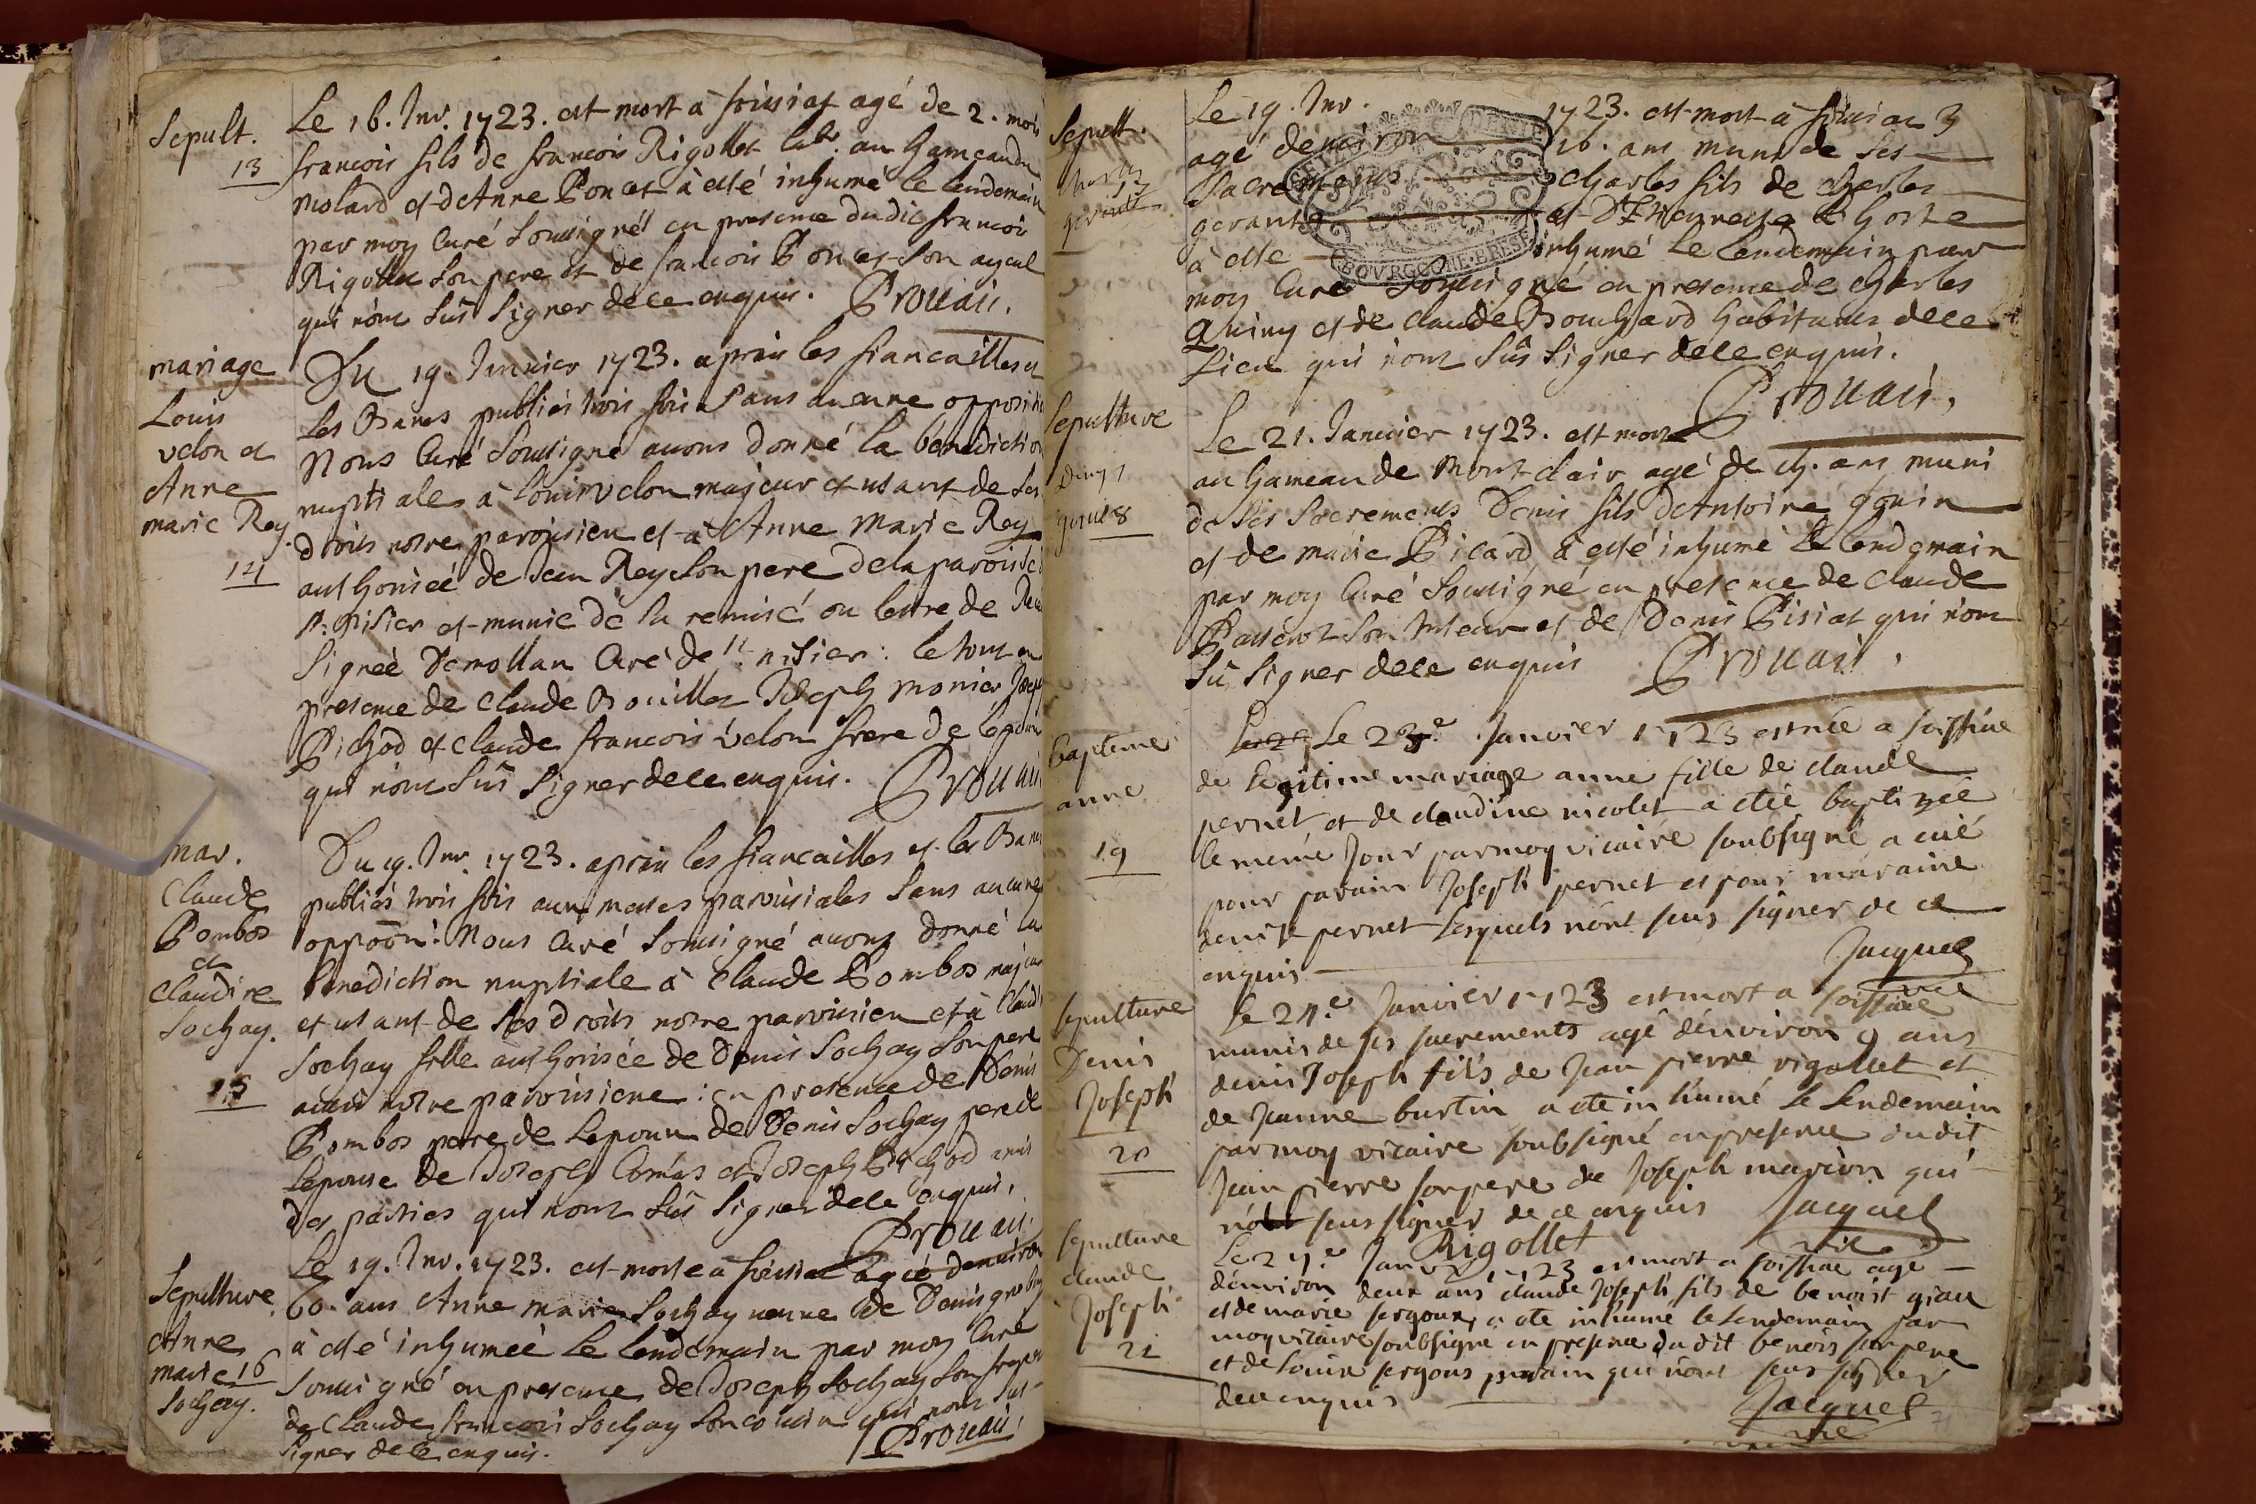 Sepult.
13
Le 16. Jnv. 1723. est mort à foissiat agé de 2. mois
francois fils de francois Rigollet lab. au hameau du
Molard et d'Anne Poncet à esté inhumé le lendemain
par moy Curé Soussigné en presence dudit francois
Rigollet son pere et de francois Poncet son ayeul
qui n'ont sus signer de ce enquis. Prouais.
mariage
Louis
velon et
Anne
marie Rey
14
Du 19. Janvier 1723. aprés les fiancailles et
les Bancs publiés trois fois sans aucune oppositi
Nous Curé Soussigné avons donné la bénédiction
nuptiale à Louis velon majeur et usant de ses
droits notre paroissien et à Anne Marie Rey
authorisée de Jean Rey son pere de la paroisse
St. Nisier et munie de la remise ou lettre de
signeé Demollan Curé de St. nisier: le tout en
presence de Claude Bouillet Joseph monier Joseph
Pichod et Claude francois velon frere de l'epoux
qui n'ont sus signer de ce enquis. Prouais
mar.
Claude
Pombos
et
Claudine
Sochay.
15
Du 19. Jnv. 1723. aprés les fiancailles et les Bancs
publiés trois fois aux messes paroissiales sans aucune
oppoõn: Nous Curé Soussigné avons donné la
benediction nuptiale à Claude Pombos majeur
et usant de ses droits notre paroissien et à Claud
Sochay fille authorisée de Denis Sochay son pere
aussi notre paroissiene: en presence de Denis
Pombos pere de l'epoux de Denis Sochay pere de
l'epouse de Joseph Comas et Joseph Pichod amis
des parties qui n'ont sus signer de ce enquis.
Prouais.
Sepulture
Anne
marie 16
Sochay.
Le 19. Jnv. 1723. est morte à foissiat agée d'environ
60. ans Anne marie Sochay veuve de Denis
à esté inhumeé le lendemain par moy Curé
soussigné en presence de Joseph Sochay son
de Claude francois Sochay son cousin qui n'ont sus
signer de ce enquis. Prouais
Sepult.
17
gerant
Le 19. Jnv. 1723. est mort à foissiat
agé d'environ 16. ans muni de ses
Sacrements Charles fils de Charles
gerant et d'Etiennette l'horte
à esté inhumé le lendemain par
moy Curé Soussigné en presence de Charles
Quiny et de Claude Bouchard habitants de ce
lieu qui n'ont sus signer de ce enquis.
Prouais,
Sepulture
Denys
18
Le 21. Janvier 1723. est mort
au hameau de Mont clair agé de ans muni
de ses Sacrements Denis fils d'Antoine gouin
et de marie Picard à esté inhumé le lendemain
par moy Curé Soussigné en presence de Claude
son tuteur et de Denis Pisiat qui n'ont
sus signer de ce enquis Prouais.
baptême
anne
19
Le 23e Janvier 1723 est née a foissiac
de legitime mariage anne fille de claude
pernet et de claudine nicolet a etée baptizeé
le meme Jour par moy vicaire soubsigné a eué
pour parain Joseph pernet et pour maraine
denise pernet lesquels n'ont seus signer de ce
enquis Jacquet
vic
sepulture
Denis
Joseph
20
le 24e Janvier 1723 est mort a foissiac
munis de ses sacrements agé d'environ 9 ans
denis Joseph fils de Jean pierre rigollet et
de Jeanne burtin a ete inhumé le lendemain
par moy vicaire soubsigné en presence dudit
Jean pierre son pere de Joseph marion qui
n'ont seus signer de ce enquis Jacquet
vic
Rigollet
sepulture
claude
Joseph
21
Le 24e Janv 1723 est mort a foissiac agé
d'environ deux ans claude Joseph fils de benoist
et de marie sergoux a ete inhumé le lendemain par
moy vicaire soubsigné en presence dudit benois son pere
et de Louis sergoux parain qui n'ont seus signer
de ce enquis Jacquet
vic
BOVRGOGNE·BRESSE